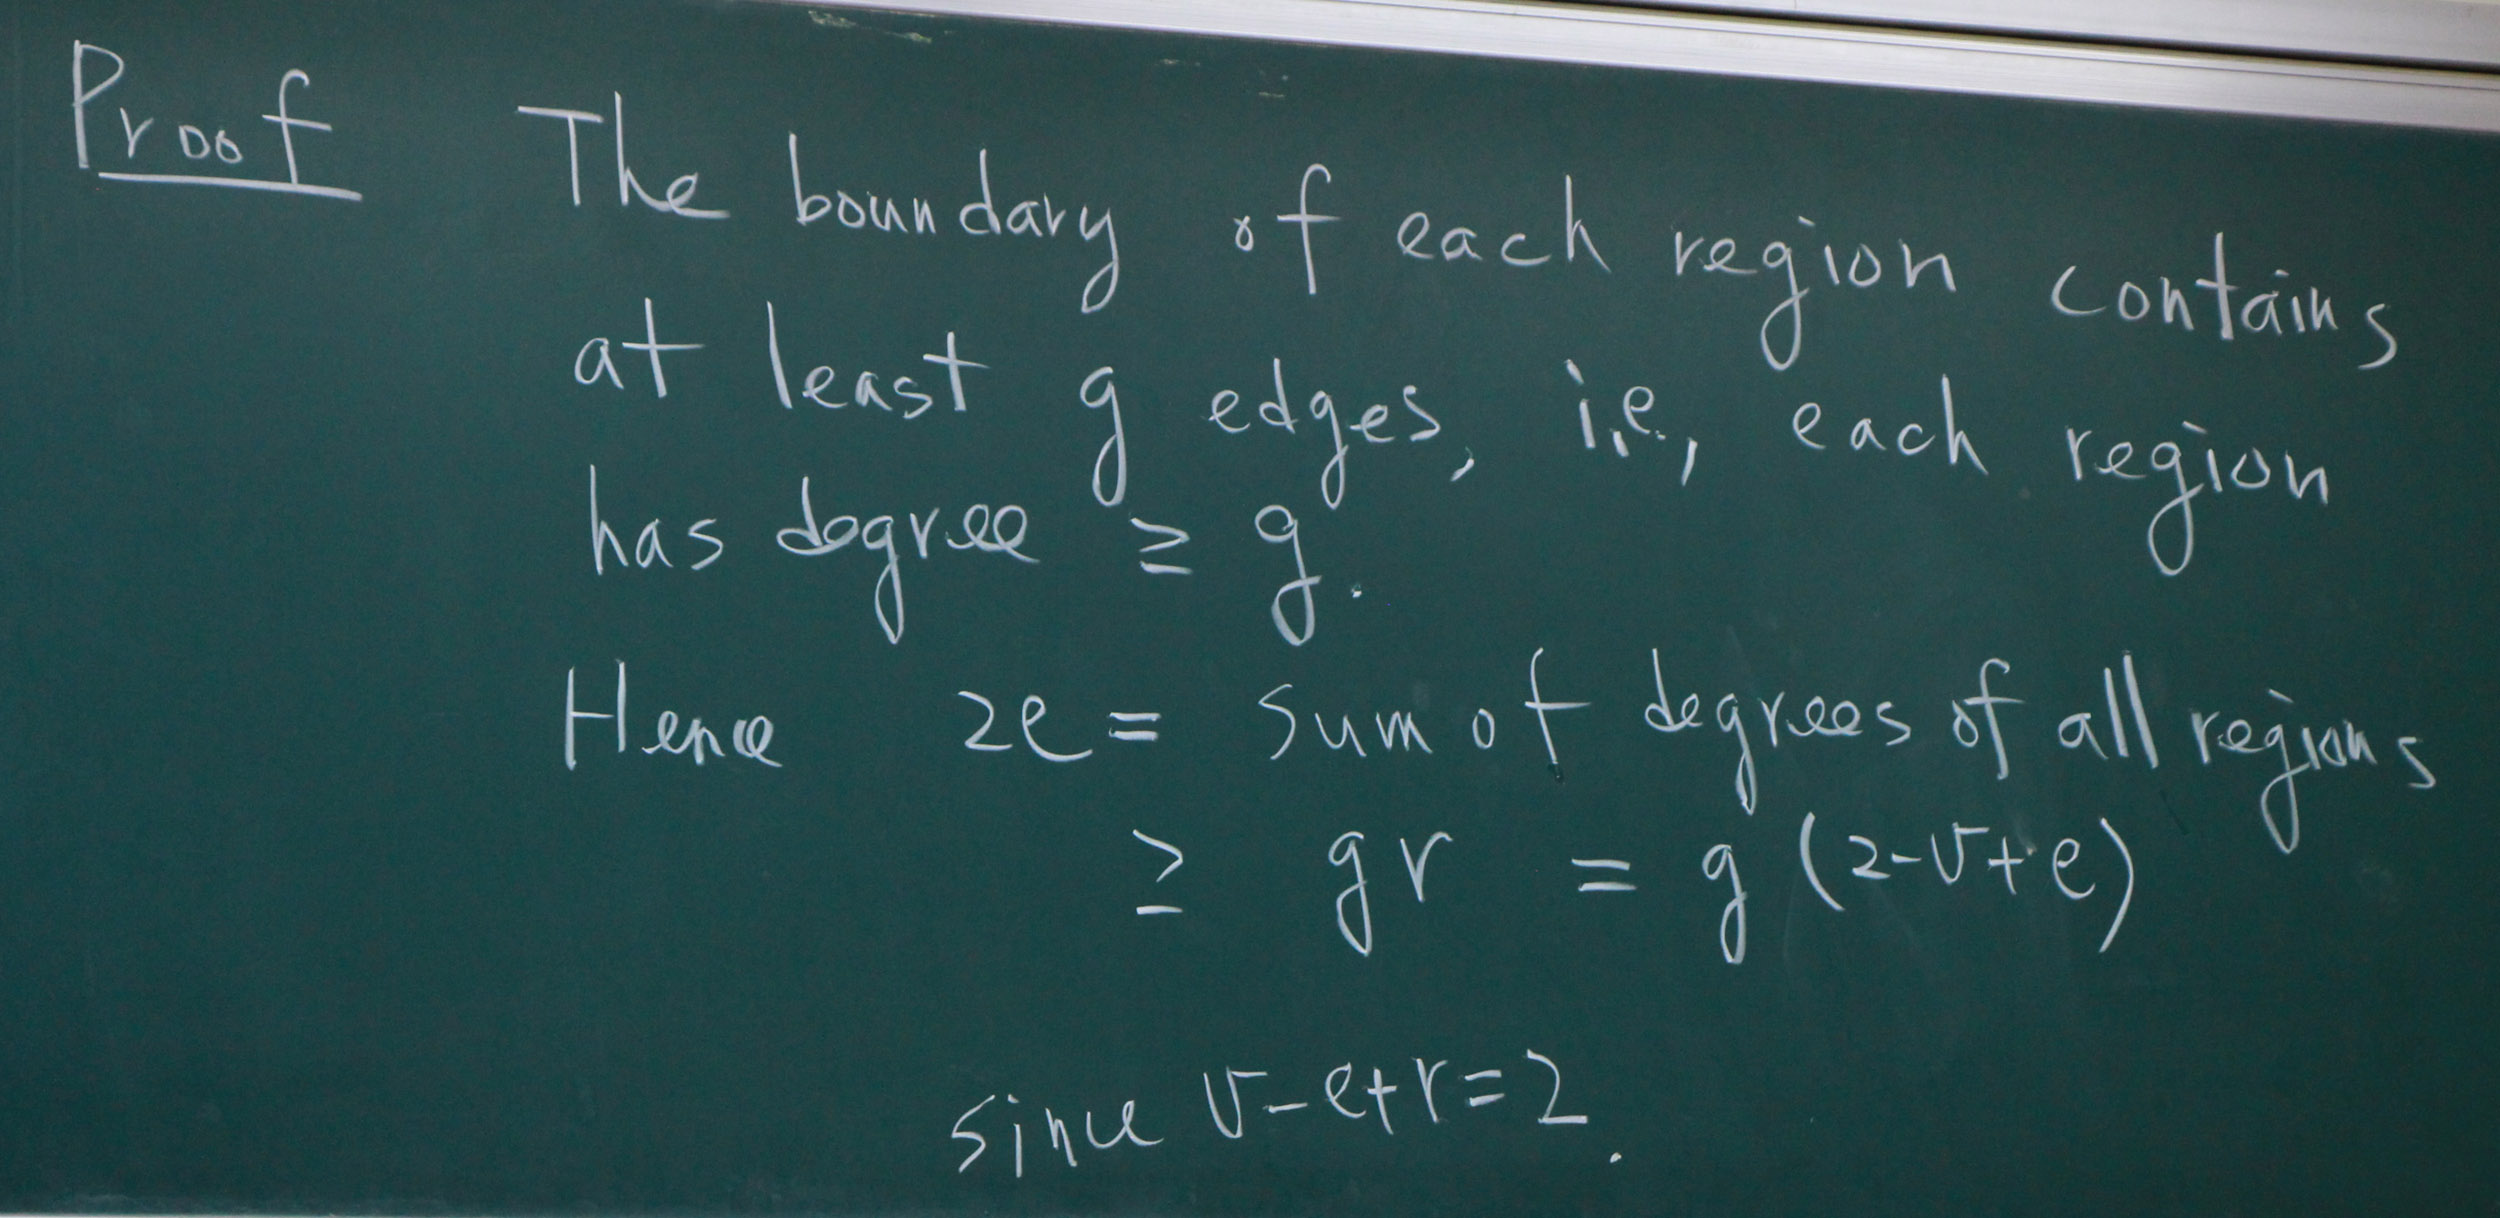 Proof The boundary of each region contains
at least g edges, i.e., each region
has degree ≥ g.
Hence 2e = sum of degrees of all regions
≥ gr = g (2-v+e)
since v-e+r=2.